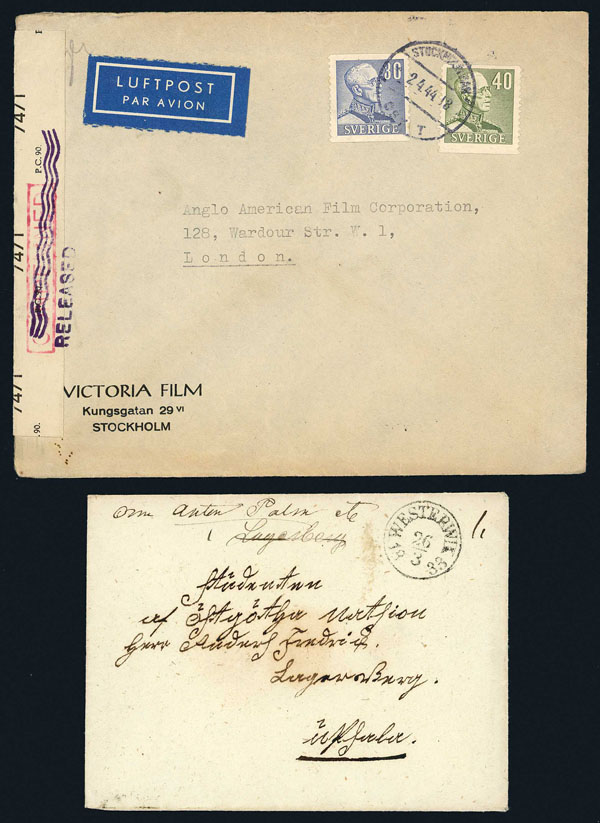 LUFTPOST
PAR AVION
30
SVERIGE
40
SVERIGE
2.4.44.18
T
P.C. 90.
7471
7471
7471
RELEASED
Anglo American Film Corporation,
128, Wardour Str. W. 1,
London.
VICTORIA FILM
Kungsgatan 29 VI
STOCKHOLM
90.
om Anton Palm etc
Lagerberg
WESTERWIK
26
3
18 33
Studenten
af Östgötha Nathion
Herr Anders Fredric
LagerBerg.
Upsala.